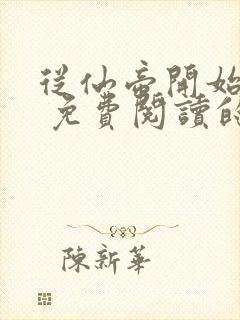 從仙帝開始
免費閱讀
陳新華